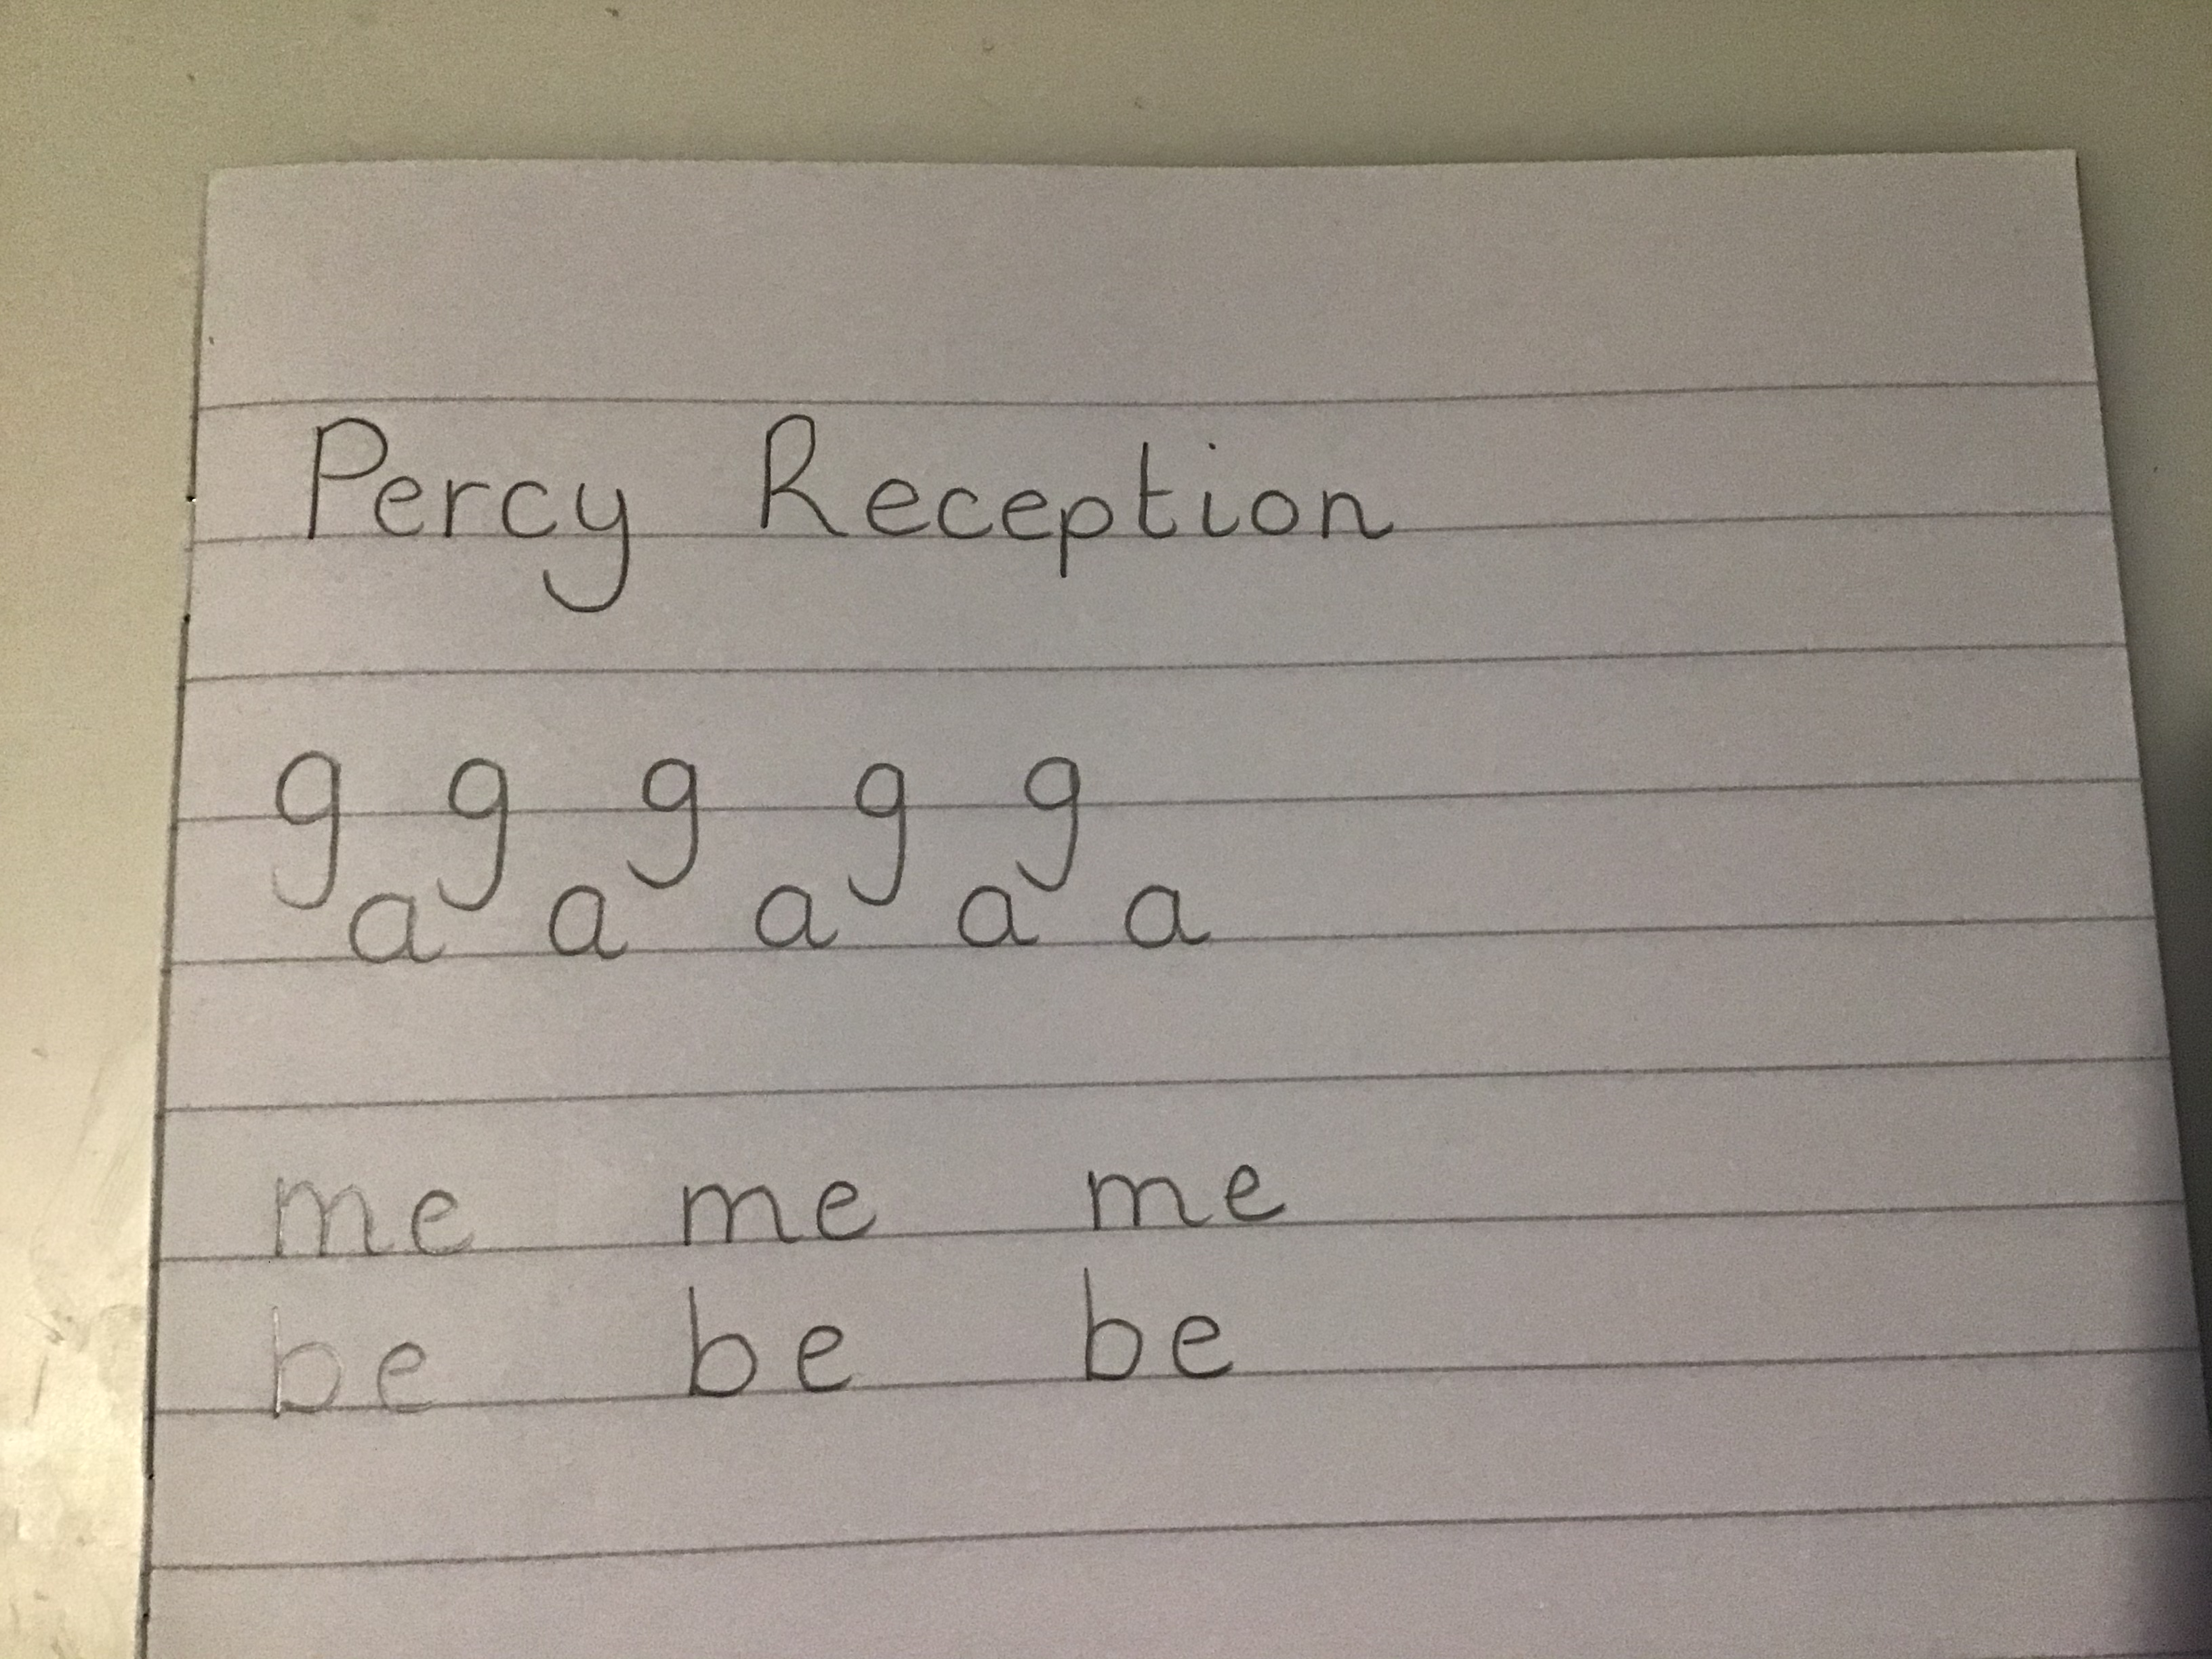 Percy Reception
g g g g g
a a a a a
me me me
be be be